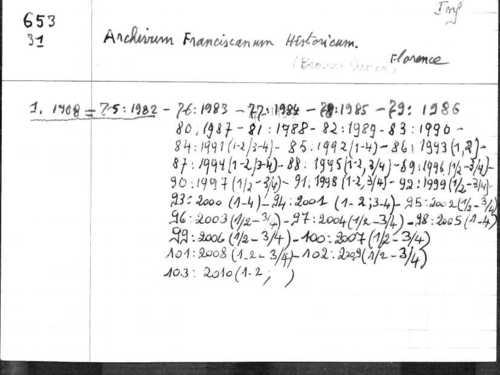 653
31
Archivum Franciscanum Historicum.
Florence
1. 1908 = 75:1982 - 76:1983 - 77:1984 - 78:1985 - 79: 1986
80. 1987 - 81:1988 - 82:1989 - 83:1990 -
84:1991(1-2/3-4) - 85.1992(1-4) - 86:1993(1,2)-
87:1994(1-2/3-4) - 88.1995(1-2,3/4) - 89:1996(1/2-3/4)-
90:1997(1/2-3/4) - 91.1998(1-2,3/4) - 92:1999(1/2-3/4)-
93:2000(1-4) - 94:2001 (1-2;3-4) - 95:2002(1/2-3/4)
96:2003(1/2-3/4) - 97:2004(1/2-3/4) - 98:2005(1-4)
99:2006(1/2-3/4) - 100:2007(1/2-3/4)
101:2008(1-2-3/4) - 102:2009(1/2-3/4)
103:2010(1-2; )